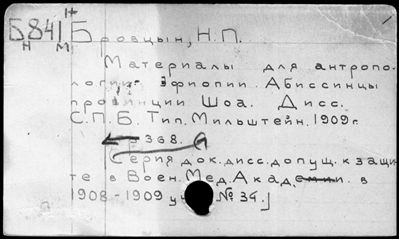 Б841 Н
Н М
Бровцын, Н.П.
Материалы для антропо-
логии Эфиопии. Абиссинцы
провинции Шоа. Дисс.
С.П.Б. Тип. Мильштейн. 1909г.
368.
(Серия док. дисс. допущ. к защи-
те в Воен. Мед. Академии. в
1908-1909 уч. № 34.)